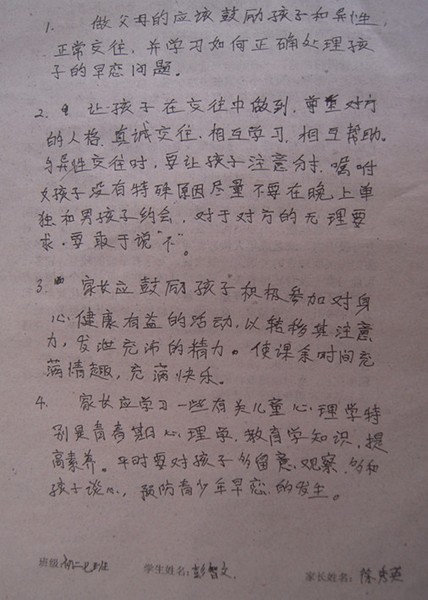 1. 做父母的应该鼓励孩子和异性
正常交往，并学习如何正确处理孩
子的早恋问题。
2. 让孩子在交往中做到，尊重对方
的人格，真诚交往，相互学习，相互帮助。
与异性交往时，要让孩子注意分寸，嘱咐
女孩子没有特殊原因尽量不要在晚上单
独和男孩子约会，对于对方的无理要
求，要敢于说“不”。
3. 家长应鼓励孩子积极参加对身
心健康有益的活动，以转移其注意
力，发泄充沛的精力。使课余时间充
满情趣，充满快乐。
4. 家长应学习一些有关儿童心理学特
别是青春期心理学、教育学知识，提
高素养。平时要对孩子多留意，观察，多和
孩子谈心，预防青少年早恋的发生。
班级：初二七班 学生姓名：彭智文 家长姓名：陈秀英